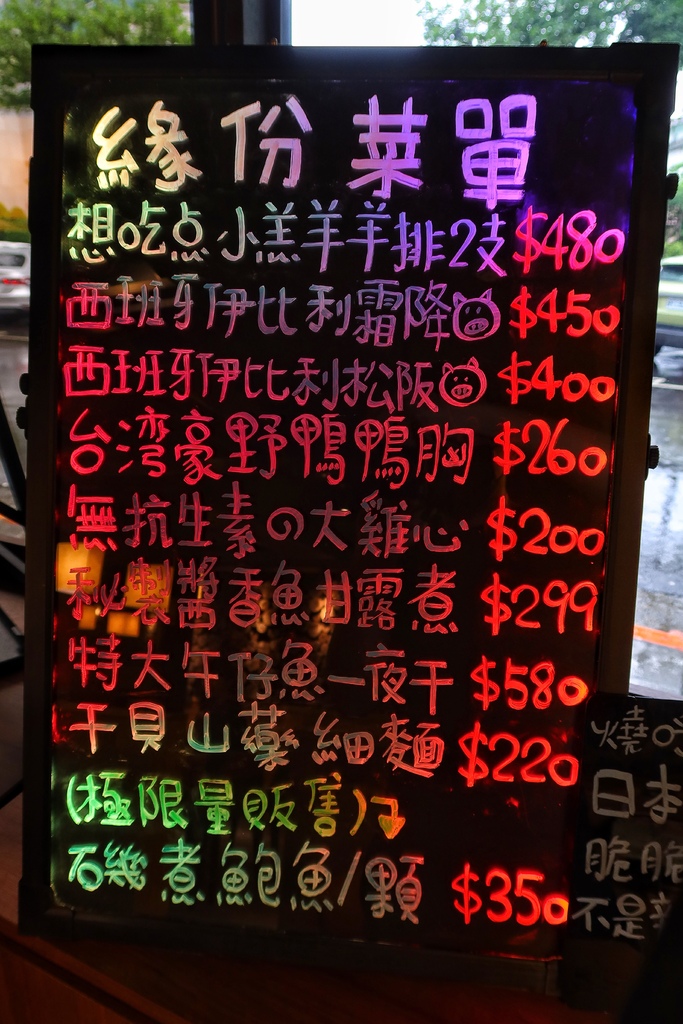 緣份菜單
想吃点小羔羊羊排2支 $480
西班牙伊比利霜降 $450
西班牙伊比利松阪 $400
台湾豪野鴨鴨胸 $260
無抗生素の大雞心 $200
秘製醬香魚甘露煮 $299
特大午仔魚一夜干 $580
干貝山藥細麵 $220
(極限量販售)
石幾煮鮑魚/顆 $350
燒
日本
脆脆
不是